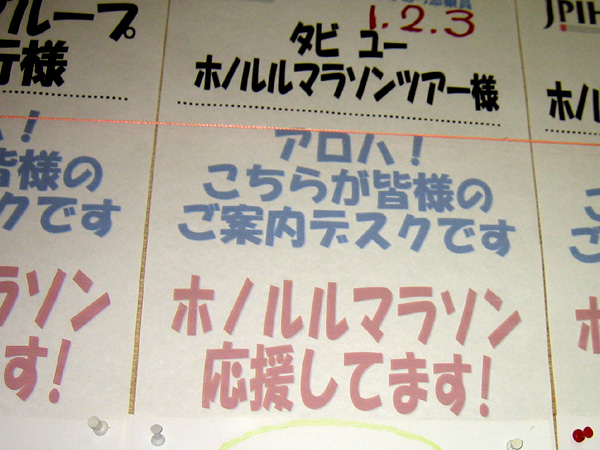 グループ
行様
ハ！
皆様の
クです
ラソン
ます!
1.2.3
タビ ュー
ホノルルマラソンツアー様
アロハ！
こちらが皆様の
ご案内デスクです
ホノルルマラソン
応援してます!
JPIH
ホノル
こ
ご
ホ